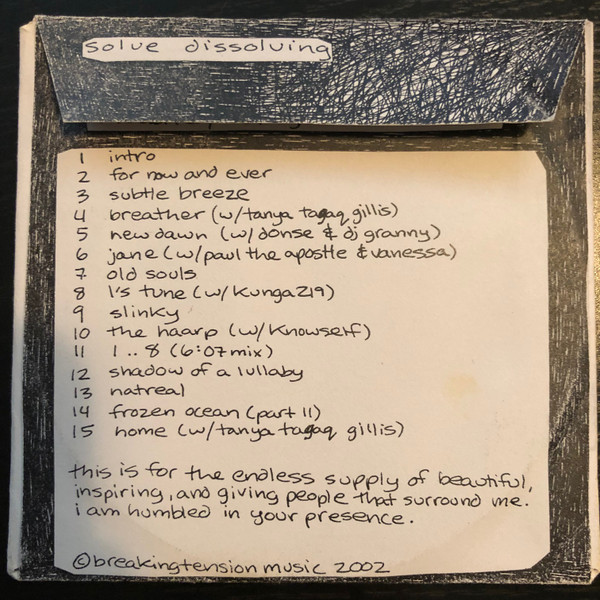 solve dissolving
1 intro
2 for now and ever
3 subtle breeze
4 breather (w/tanya tagaq gillis)
5 new dawn (w/donse & dj granny)
6 jane (w/paul the apostle & vanessa)
7 old souls
8 l's tune (w/kunga219)
9 slinky
10 the haarp (w/knowself)
11 1..8 (6:07 mix)
12 shadow of a lullaby
13 natreal
14 frozen ocean (part II)
15 home (w/tanya tagaq gillis)
this is for the endless supply of beautiful,
inspiring, and giving people that surround me.
i am humbled in your presence.
©breakingtension music 2002